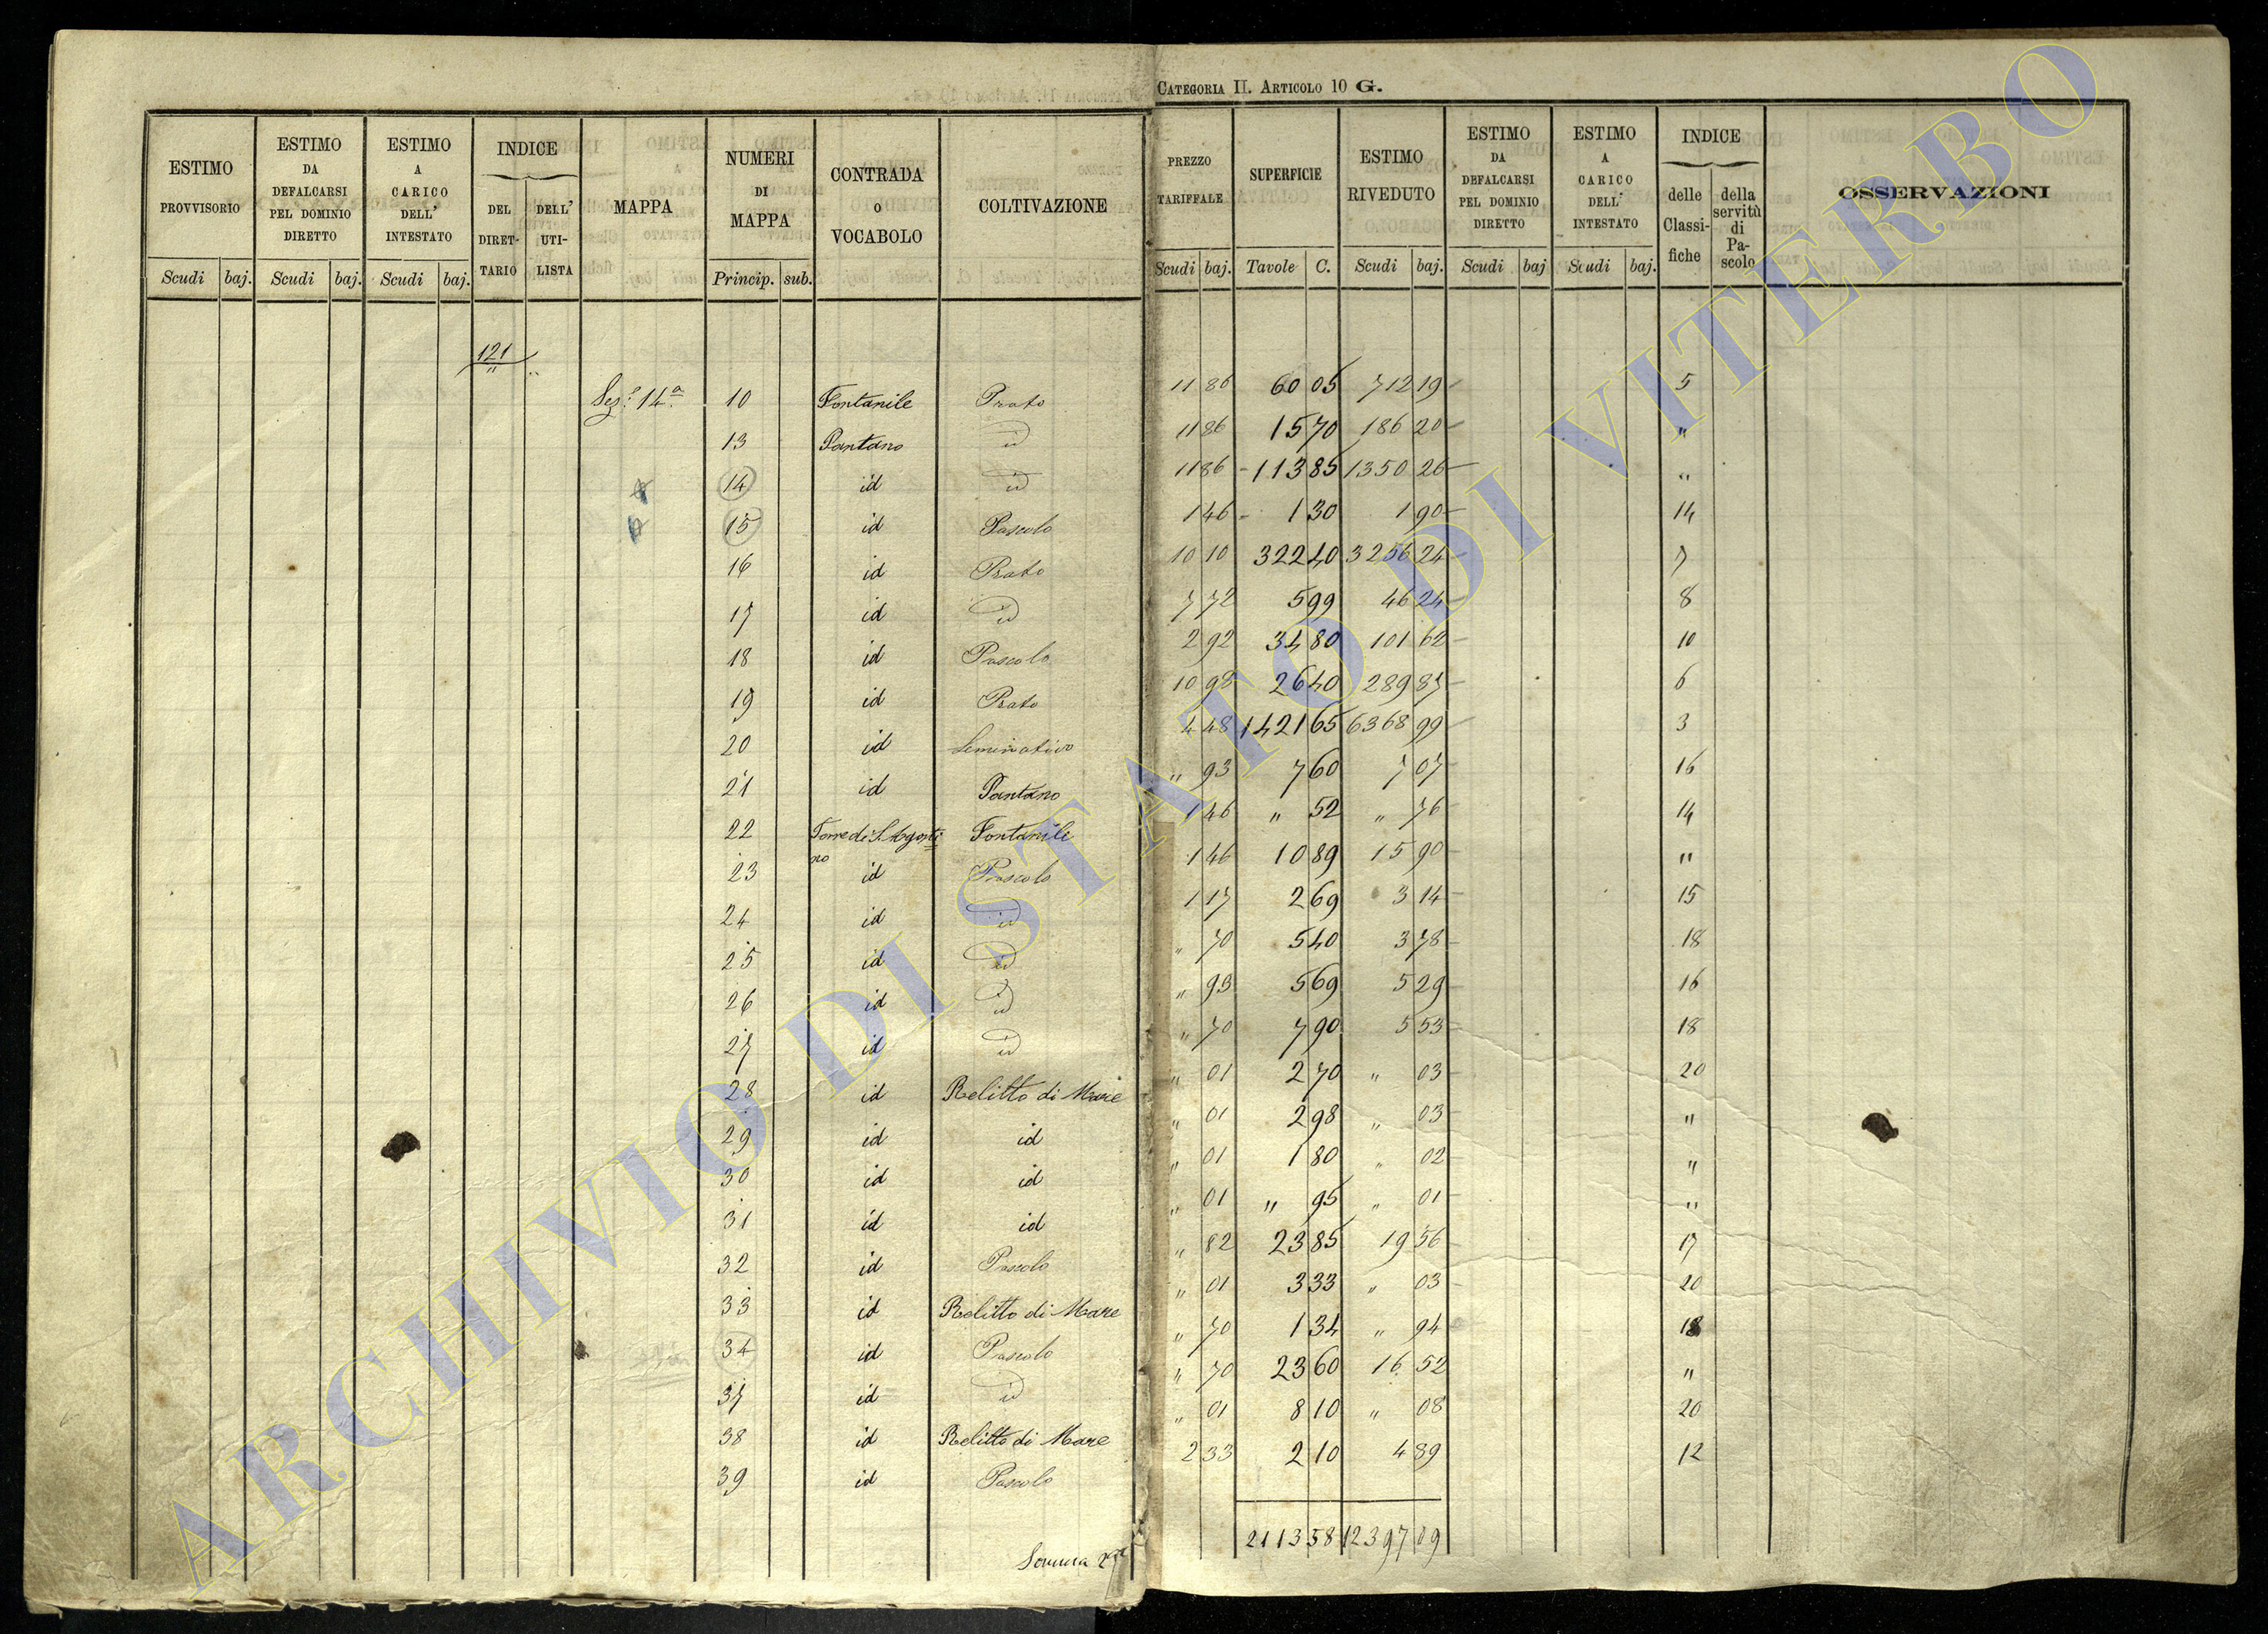 CATEGORIA II. ARTICOLO 10 G.
ESTIMO PROVVISORIO Scudi baj. | ESTIMO DA DEFALCARSI PEL DOMINIO DIRETTO Scudi baj. | ESTIMO A CARICO DELL' INTESTATO Scudi baj. | INDICE DEL DIRETTARIO | DELL' UTILISTA | MAPPA | NUMERI DI MAPPA Princip. sub. | CONTRADA O VOCABOLO | COLTIVAZIONE | PREZZO TARIFFALE Scudi baj. | SUPERFICIE Tavole C. | ESTIMO RIVEDUTO Scudi baj. | ESTIMO DA DEFALCARSI PEL DOMINIO DIRETTO Scudi baj | ESTIMO A CARICO DELL' INTESTATO Scudi baj. | INDICE delle Classifiche | della servitù di Pascolo | OSSERVAZIONI
121 "
Sez.e 14a 10 Fontanile Prato 11 86 60 05 712 19 5
13 Pantano id 11 86 15 70 186 20 "
14 id id 11 86 113 85 1350 26 "
15 id Pascolo 1 46 1 30 1 90 14
16 id Prato 10 10 322 40 3256 24 7
17 id id 7 72 5 99 46 24 8
18 id Pascolo 2 92 34 80 101 62 10
19 id Prato 10 98 26 40 289 87 6
20 id Seminativo 4 48 1421 65 6368 99 3
21 id Pantano " 93 7 60 7 07 16
22 Torre di S. Agostino Fontanile 1 46 " 52 " 76 14
23 id Pascolo 1 46 10 89 15 90 "
24 id id 1 17 2 69 3 14 15
25 id id " 70 5 40 3 78 18
26 id id " 93 5 69 5 29 16
27 id id " 70 7 90 5 53 18
28 id Relitto di Mare " 01 2 70 " 03 20
29 id id " 01 2 98 " 03 "
30 id id " 01 1 80 " 02 "
31 id id " 01 " 95 " 01 "
32 id Pascolo " 82 23 85 19 56 17
33 id Relitto di Mare " 01 3 33 " 03 20
34 id Pascolo " 70 1 34 " 94 18
37 id id " 70 23 60 16 52 "
38 id Relitto di Mare " 01 8 10 " 08 20
39 id Pascolo 2 33 2 10 4 89 12
Somma 2113 58 12397 09
ARCHIVIO DI STATO DI VITERBO